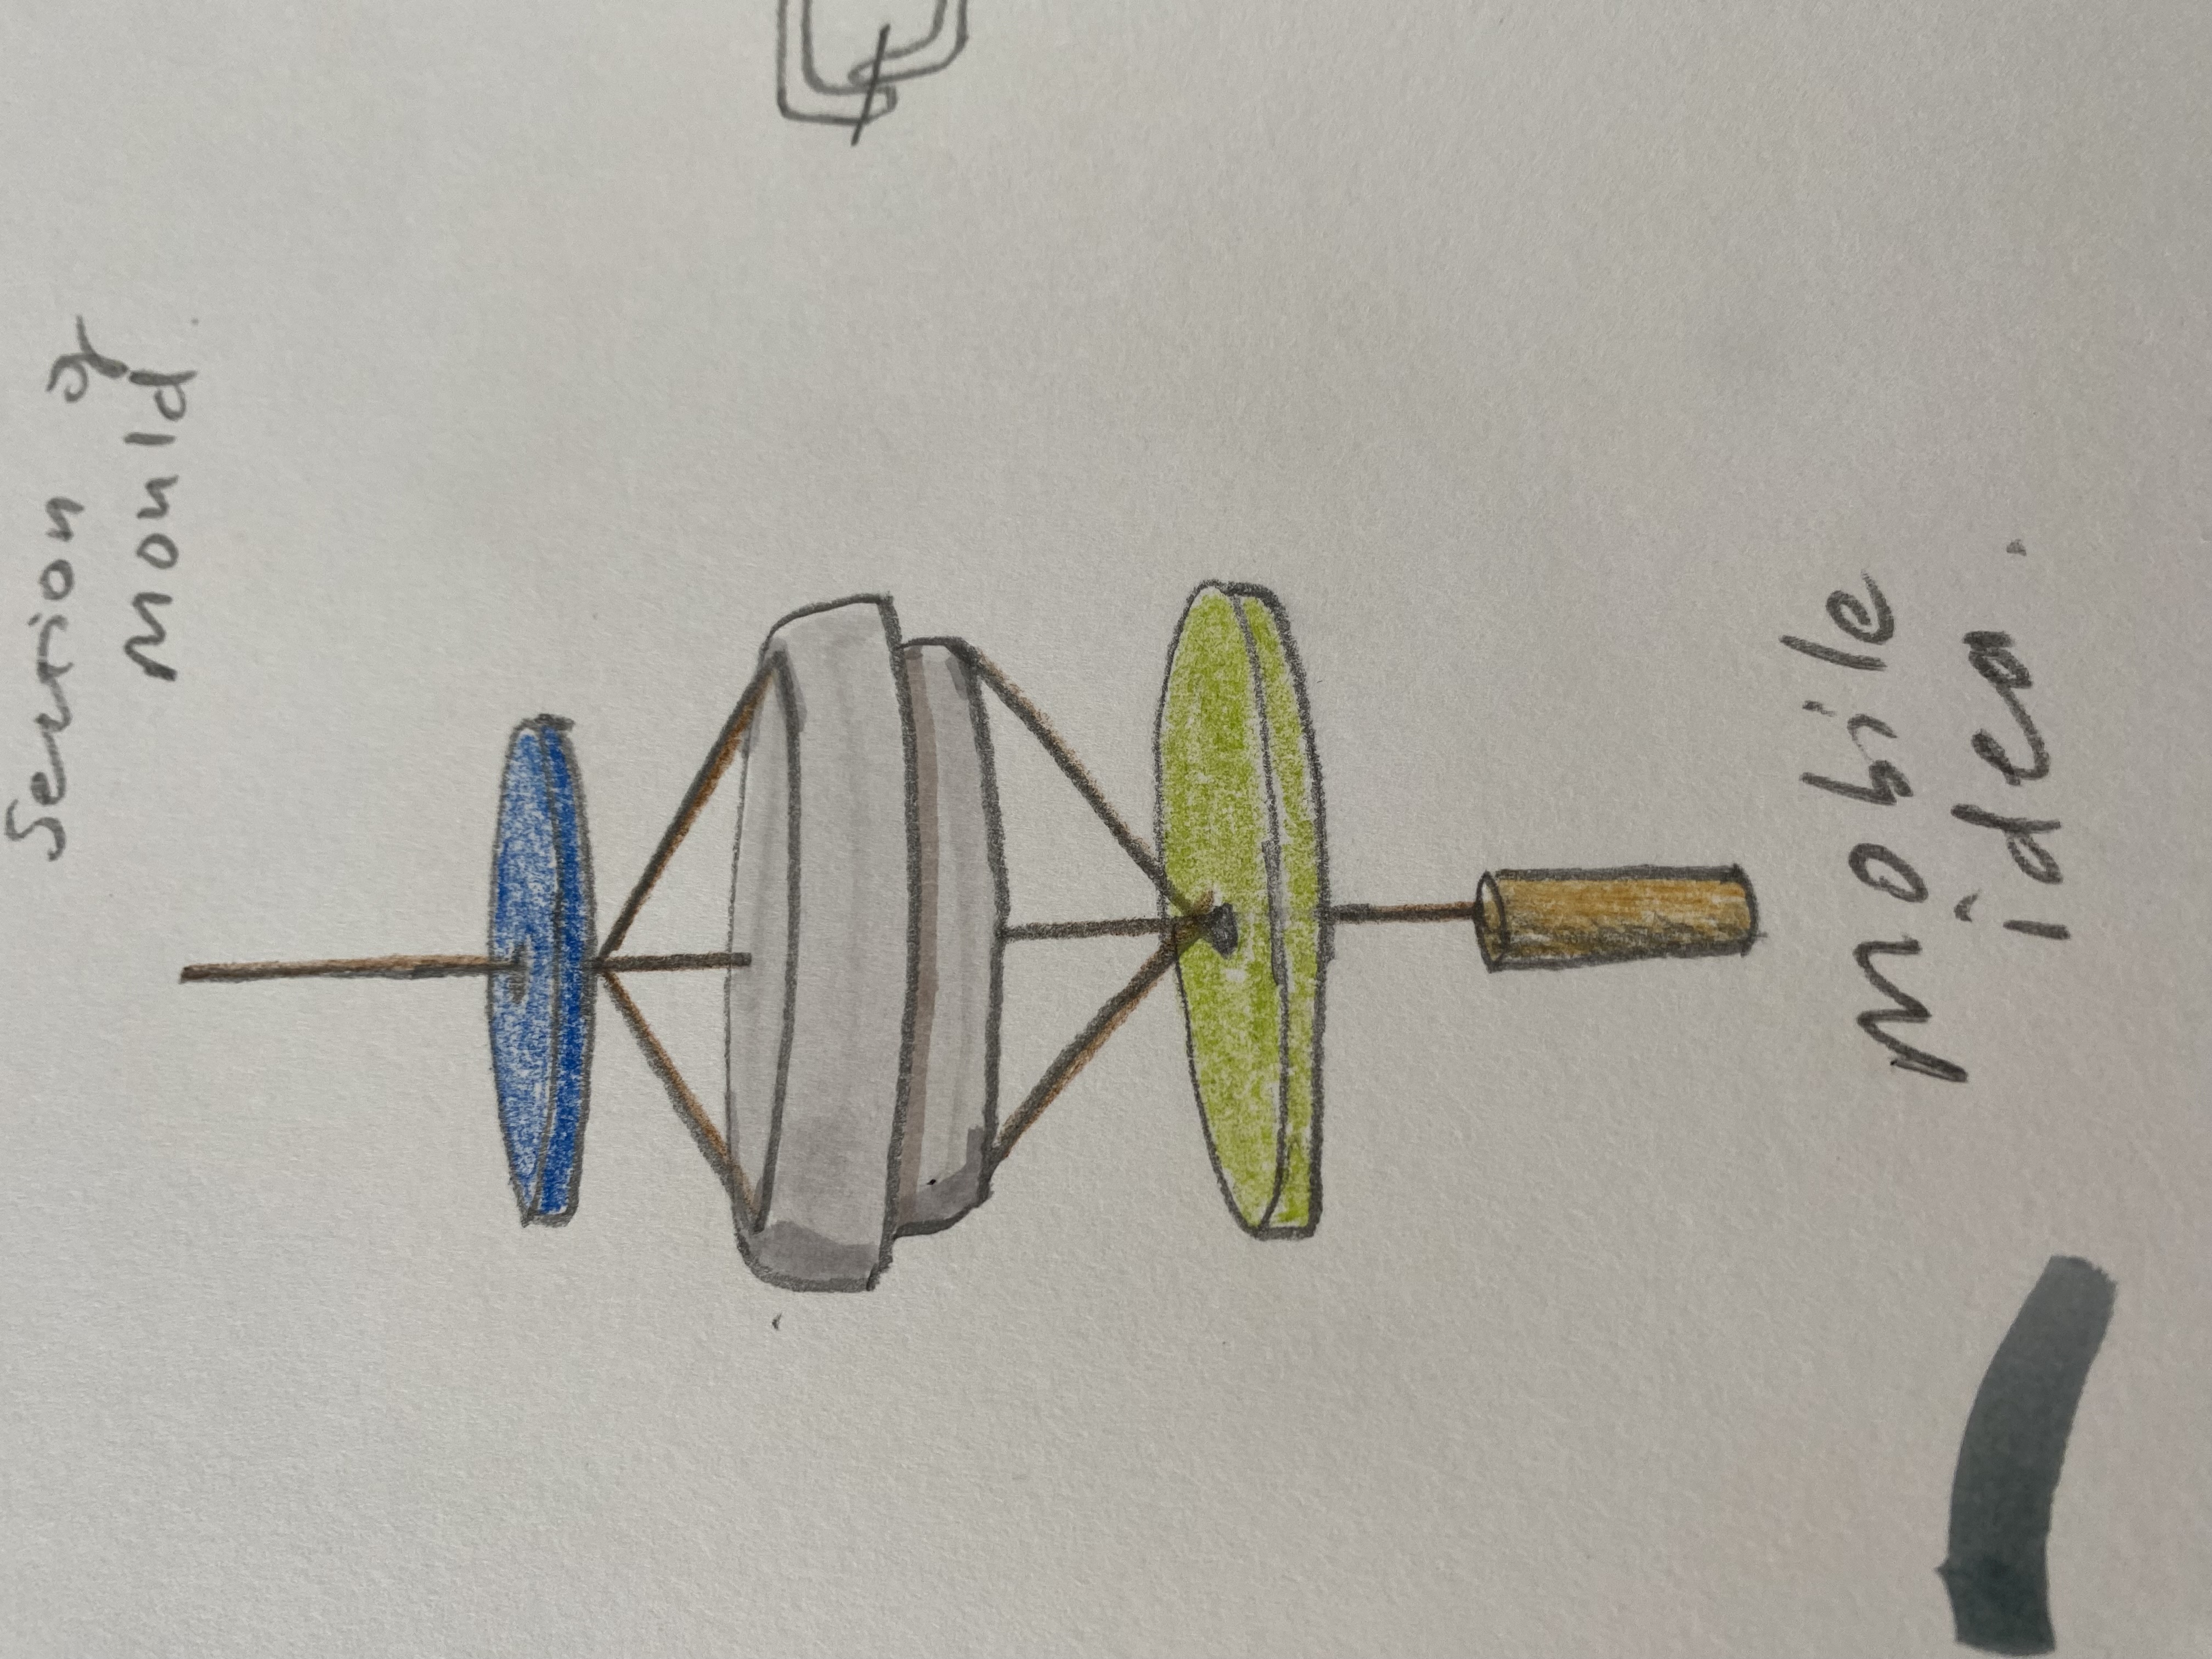 Section of
Mould.
Mobile
idea.